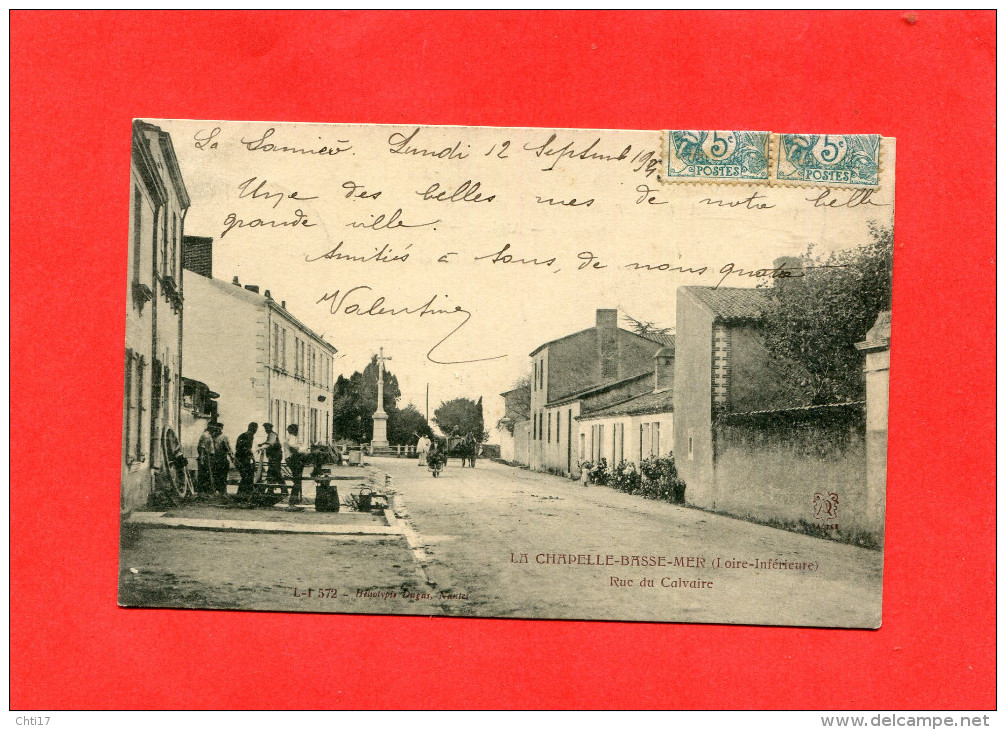 Lundi 12 Septembre
5c 5c
POSTES POSTES
Une des belles rues de notre belle
grande ville.
Amitiés à tous, de nous quatre
Valentine
LA CHAPELLE-BASSE-MER (Loire-Inférieure)
Rue du Calvaire
L-I 572 - Héliotypie Dugas, Nantes
Chti17
www.delcampe.net